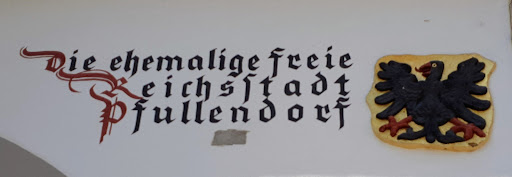 Die ehemalige freie
Reichsſtadt
Pfullendorf